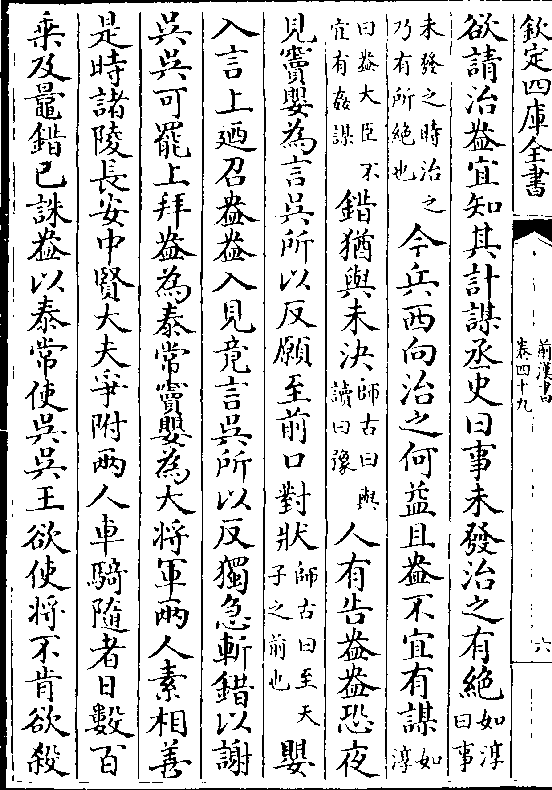 欽定四庫全書
前漢書
卷四十九
六
欲請治盎宜知其計謀丞史曰事未發治之有絶如淳曰事
未發之時治之乃有所絶也今兵西向治之何益且盎不宜有謀如淳
曰盎大臣不宜有姦謀錯猶與未決師古曰與讀曰豫人有告盎盎恐夜
見竇嬰為言吳所以反願至前口對狀師古曰至天子之前也嬰
入言上廼召盎盎入見竟言吳所以反獨急斬錯以謝
吳吳可罷上拜盎為泰常竇嬰為大將軍兩人素相善
是時諸陵長安中賢大夫爭附兩人車騎隨者日數百
乘及鼂錯已誅盎以泰常使吳吳王欲使將不肯欲殺